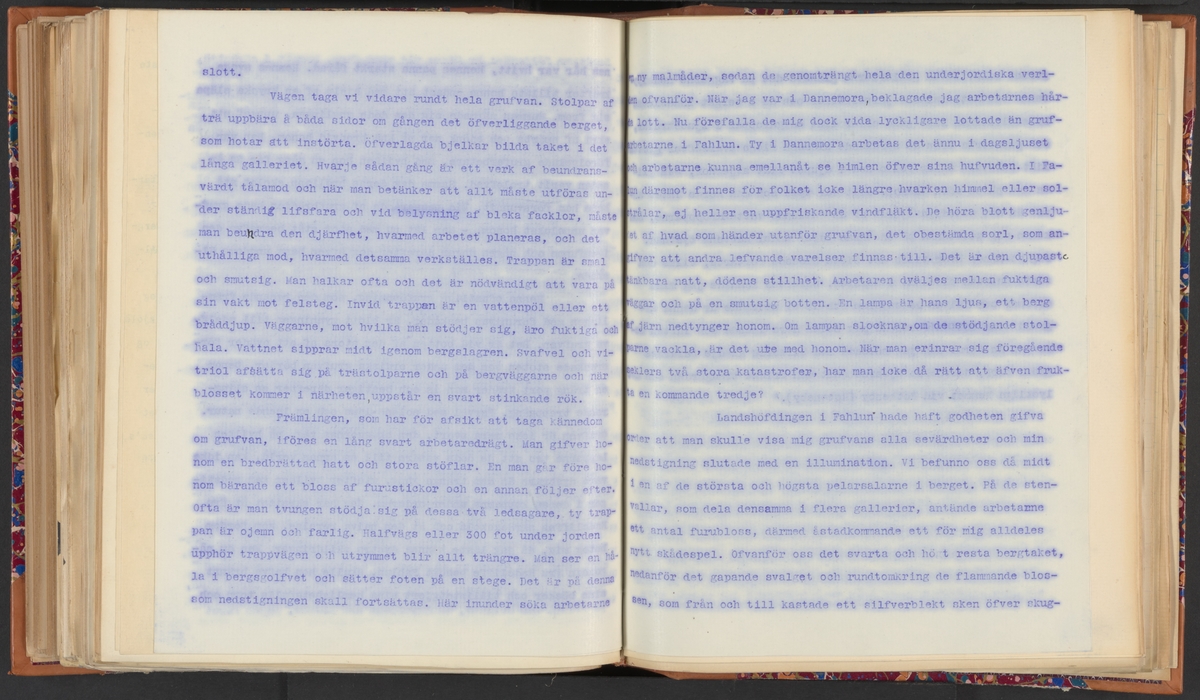 slott.
Vägen taga vi vidare rundt hela grufvan. Stolpar af
trä uppbära å båda sidor om gången det öfverliggande berget,
som hotar att instörta. Öfverlagda bjelkar bilda taket i det
långa galleriet. Hvarje sådan gång är ett verk af beundrans-
värdt tålamod och när man betänker att allt måste utföras un-
der ständig lifsfara och vid belysning af bleka facklor, måste
man beundra den djärfhet, hvarmed arbetet planeras, och det
uthålliga mod, hvarmed detsamma verkställes. Trappan är smal
och smutsig. Man halkar ofta och det är nödvändigt att vara på
sin vakt mot felsteg. Invid trappan är en vattenpöl eller ett
bråddjup. Väggarne, mot hvilka man stödjer sig, äro fuktiga och
hala. Vattnet sipprar midt igenom bergslagren. Svafvel och vi-
triol afsätta sig på trästolparne och på bergväggarne och när
blosset kommer i närheten, uppstår en svart stinkande rök.
Främlingen, som har för afsikt att taga kännedom
om grufvan, iföres en lång svart arbetaredrägt. Man gifver ho-
nom en bredbrättad hatt och stora stöflar. En man går före ho-
nom bärande ett bloss af furustickor och en annan följer efter.
Ofta är man tvungen stödja sig på dessa två ledsagare, ty trap-
pan är ojemn och farlig. Halfvägs eller 300 fot under jorden
upphör trappvägen och utrymmet blir allt trängre. Man ser en hå-
la i bergsgolfvet och sätter foten på en stege. Det är på denna
som nedstigningen skall fortsättas. Här inunder söka arbetarne
ny malmåder, sedan de genomträngt hela den underjordiska verl-
ofvanför. När jag var i Dannemora, beklagade jag arbetarnes hår-
lott. Nu förefalla de mig dock vida lyckligare lottade än gruf-
arbetarne i Fahlun. Ty i Dannemora arbetas det ännu i dagsljuset
arbetarne kunna emellanåt se himlen öfver sina hufvuden. I Fa-
däremot finnes för folket icke längre hvarken himmel eller sol-
strålar, ej heller en uppfriskande vindfläkt. De höra blott genlju-
af hvad som händer utanför grufvan, det obestämda sorl, som an-
gifver att andra lefvande varelser finnas till. Det är den djupaste
tänkbara natt, dödens stillhet. Arbetaren dväljes mellan fuktiga
väggar och på en smutsig botten. En lampa är hans ljus, ett berg
af järn nedtynger honom. Om lampan slocknar, om de stödjande stol-
parne vackla, är det ute med honom. När man erinrar sig föregående
seklers två stora katastrofer, har man icke då rätt att äfven fruk-
ta en kommande tredje?
Landshöfdingen i Fahlun hade haft godheten gifva
order att man skulle visa mig grufvans alla sevärdheter och min
nedstigning slutade med en illumination. Vi befunno oss då midt
i en af de största och högsta pelarsalarne i berget. På de sten-
vallar, som dela densamma i flera gallerier, antände arbetarne
ett antal furubloss, därmed åstadkommande ett för mig alldeles
nytt skådespel. Ofvanför oss det svarta och högt resta bergtaket,
nedanför det gapande svalget och rundtomkring de flammande blos-
sen, som från och till kastade ett silfverblekt sken öfver skug-